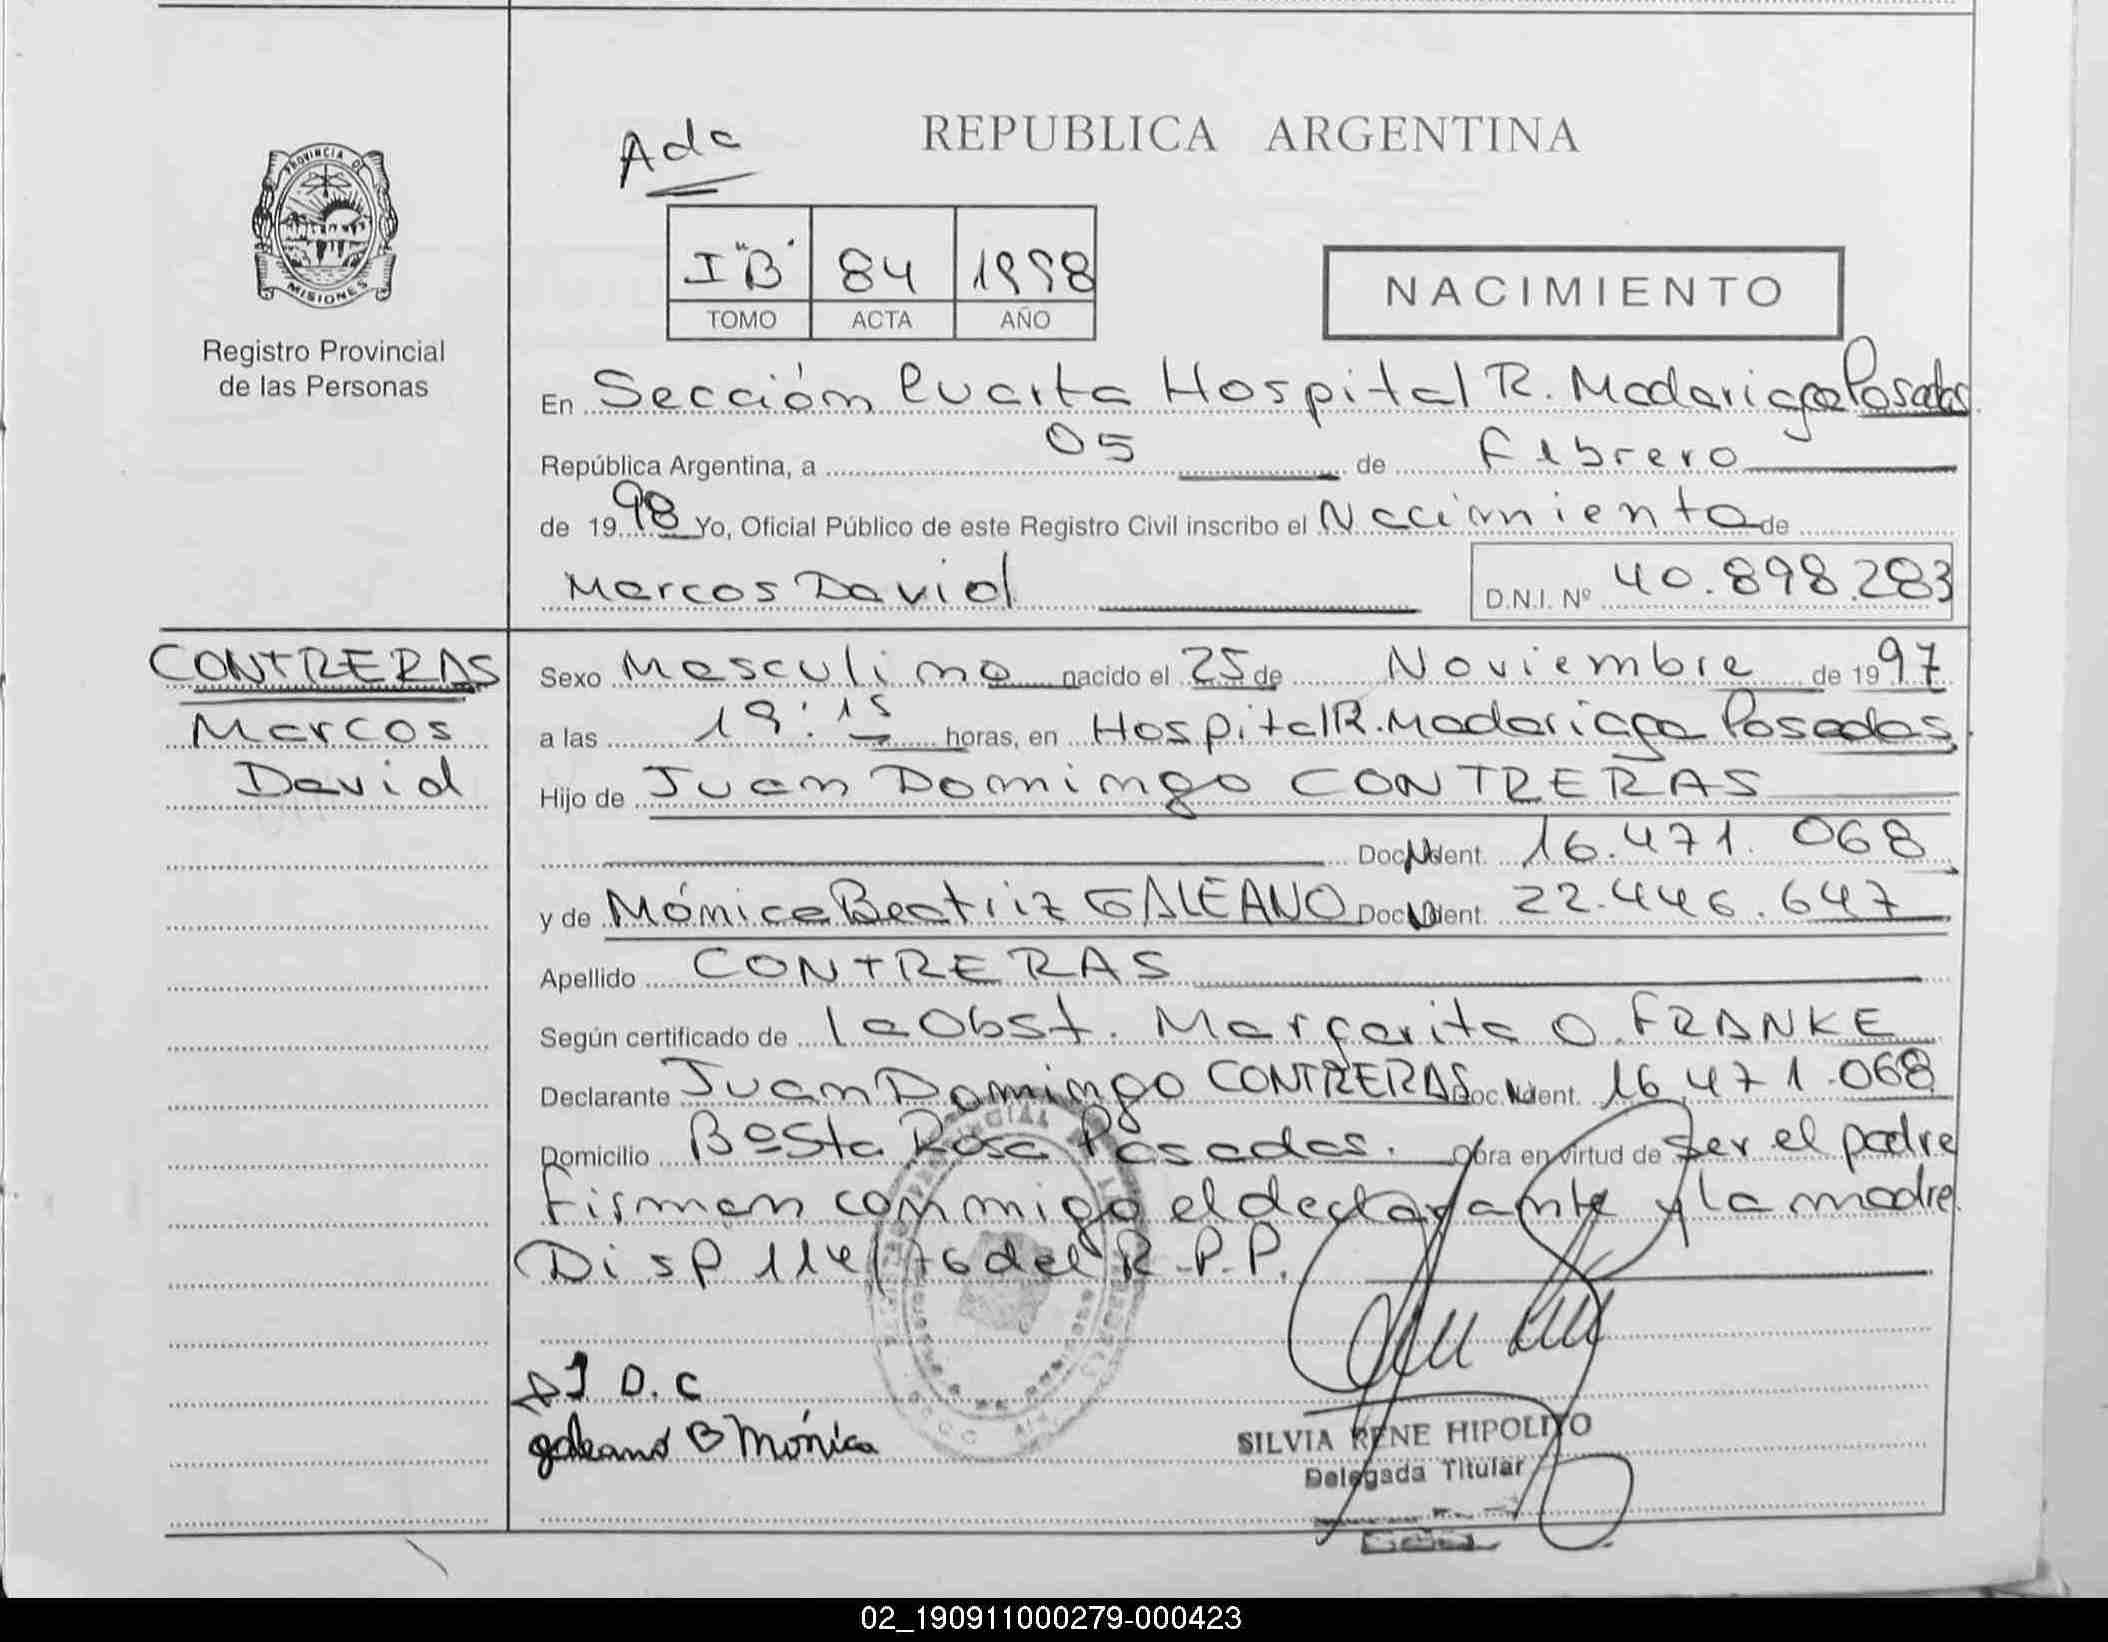 PROVINCIA DE
MISIONES
Registro Provincial
de las Personas
Adc
REPUBLICA ARGENTINA
I "B" 84 1998
TOMO ACTA AÑO
NACIMIENTO
En Sección Cuarta Hospital R. Madariaga Posadas
República Argentina, a 05 de Febrero
de 1998 Yo, Oficial Público de este Registro Civil inscribo el Nacimiento de
Marcos David D.N.I. Nº 40.898.283
CONTRERAS
Marcos
David
Sexo Masculino nacido el 25 de Noviembre de 1997
a las 19:15 horas, en Hospital R. Madariaga Posadas
Hijo de Juan Domingo CONTRERAS
Doc. Ident. 16.471.068
y de Mónica Beatriz GALEANO Doc. Ident. 22.446.647
Apellido CONTRERAS
Según certificado de la Obst. Margarita O. FRANKE
Declarante Juan Domingo CONTRERAS Doc. Ident. 16.471.068
Domicilio Bº Sta Rosa Posadas. Obra en virtud de Ser el padre
Firman conmigo el declarante y la madre
Disp 114/76 del R.P.P.
J D. C
galeano B Mónica
SILVIA RENE HIPOLITO
Delegada Titular
02_190911000279-000423